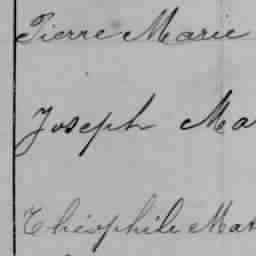 Pierre Marie
Joseph Ma
Théophile Mat